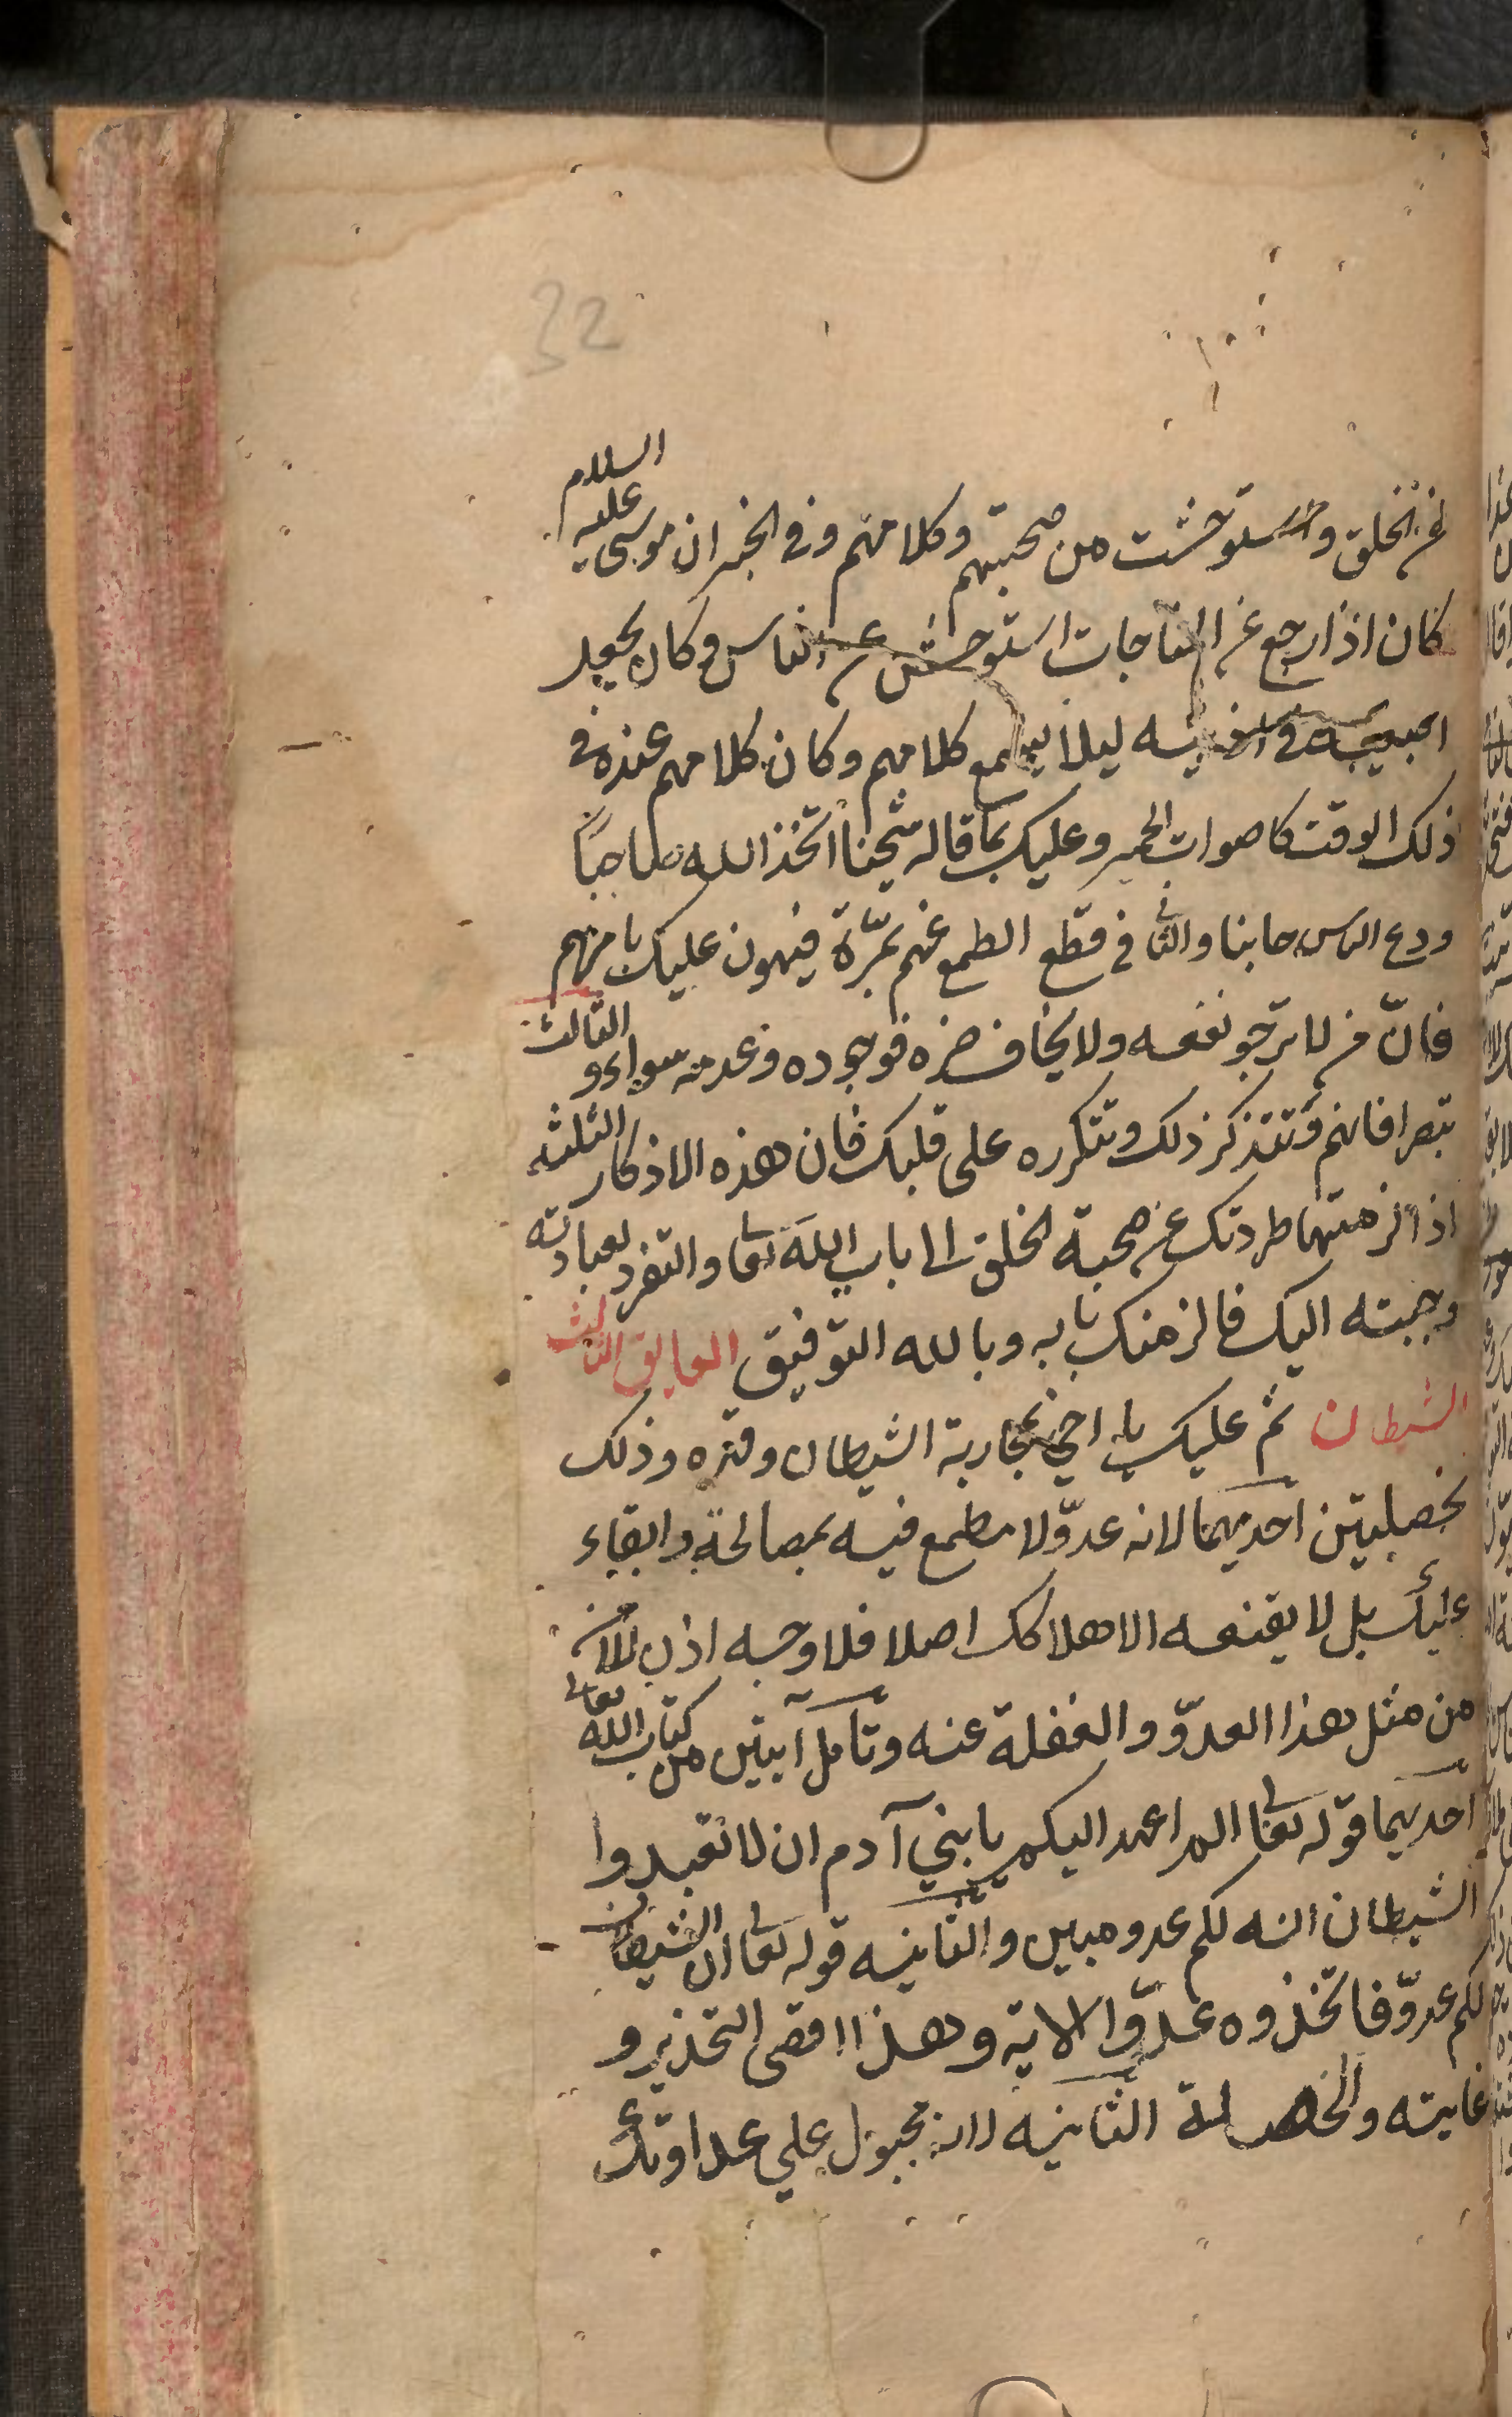 32
من الخلق واستوحشت من صحبتهم وكلامهم وفي الخبر ان موسى عليه السلام
كان اذا رجع من المناجات استوحش من الناس وكان يجعل
اصبعيه في اذنيه ليلا يسمع كلامهم وكان كلامهم عنده في
ذلك الوقت كاصوات الحمير وعليك بما قاله شيخنا اتخذ الله صاحبًا
ودع الناس جانبا والثاني قطع الطمع عنهم بمرّة فيهون عليك بامرهم
فانّ من لا ترجو نفعه ولا يخاف ضره فوجوده وعدمه سواء و الثالث
تبصر افاتهم وتتذكر ذلك وتتكرره على قلبك فان هذه الاذكار الثلثه
اذا لزمتها طردتك عن صحبة الخلق الى باب الله تعا والتفرد لعبادته
وحببته اليك فالزمتك بابه وبالله التوفيق العايق الثالث
الشيطان ثم عليك يا اخي بمحاربة الشيطان وقهره وذلك
بخصلتين احديهما لانه عدوّ لا مطمع فيه بمصالحة وابقاء
عليك بل لا يقنعه الا هلاكك اصلا فلا وجه اذن للامن
من مثل هذا العدوّ والغفلة عنه وتامل آيتين من كتاب الله تعالى
احديهما قوله تعا الم اعهد اليكم يا بني آدم ان لا تعبدوا
الشيطان انه لكم عدو مبين والثانيه قوله تعا ان الشيطان
لكم عدوّ فاتخذوه عدوّا الاية وهذا اقصى التحذير و
غايته والخصلة الثانيه لانه مجبول علي عداوتك